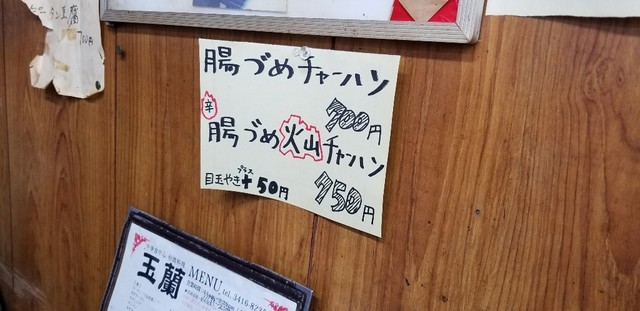 豆腐
700円
腸づめチャーハン
700円
辛
腸づめ火山チャーハン
750円
プラス
目玉やき+50円
玉蘭
MENU
tel. 3416-82